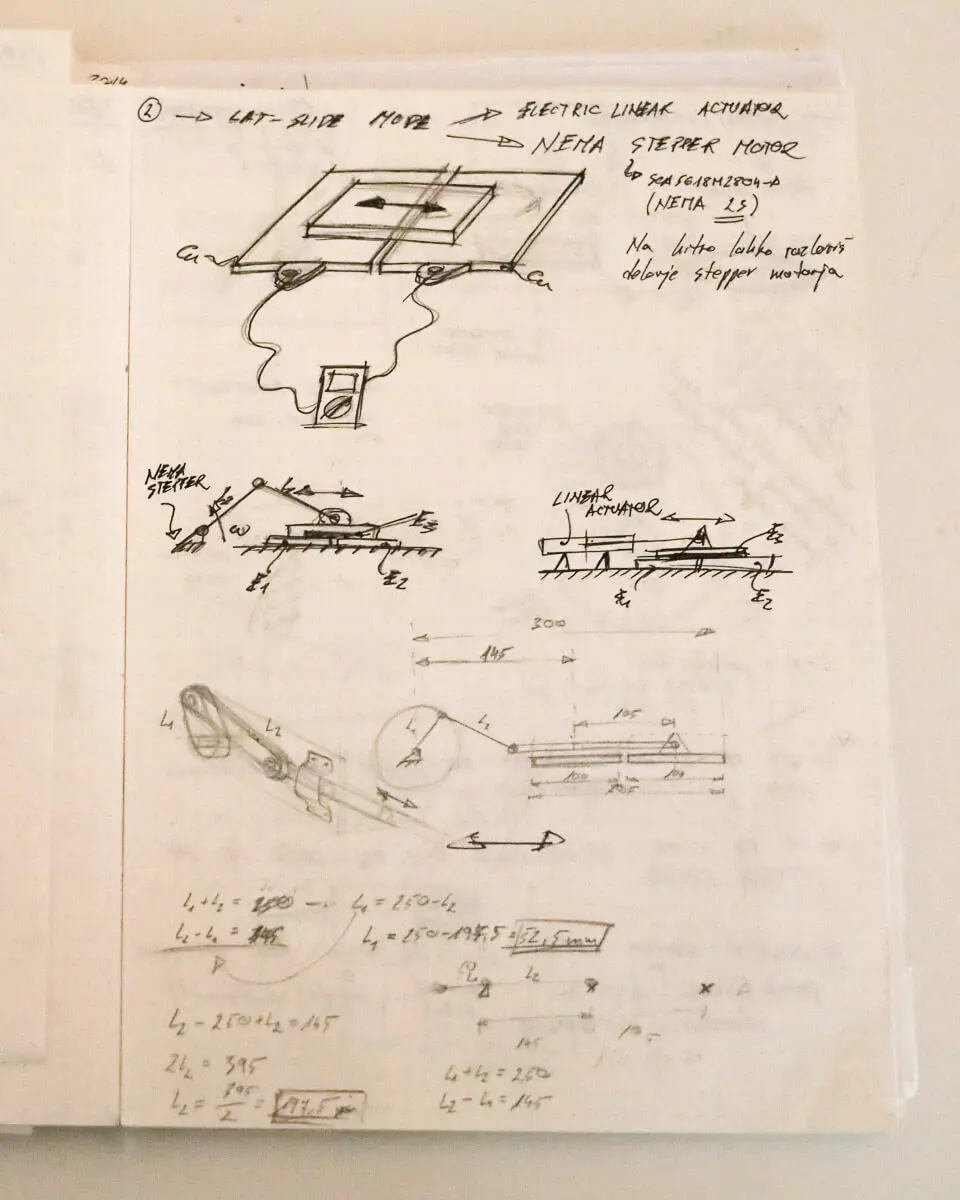 ② → LAT-SLIDE MODE → ELECTRIC LINEAR ACTUATOR
→ NEMA STEPPER MOTOR
(NEMA 23)
Na hitro lahko razložiš
delovje stepper motorja
Cu
Cu
NEMA
STEPPER
L₁
L₂
ω
E₃
E₁
E₂
LINEAR
ACTUATOR
E₃
E₁
E₂
300
145
L₁
L₂
L₁
L₂
105
100
100
205
L₁+L₂ = 250 → L₁ = 250-L₂
L₂-L₁ = 145
L₁ = 250-197,5 = 52,5 mm
L₂
145
105
L₂ - 250+L₂ = 145
2L₂ = 395
L₂ = 395/2 = 197,5
L₁+L₂ = 250
L₂-L₁ = 145